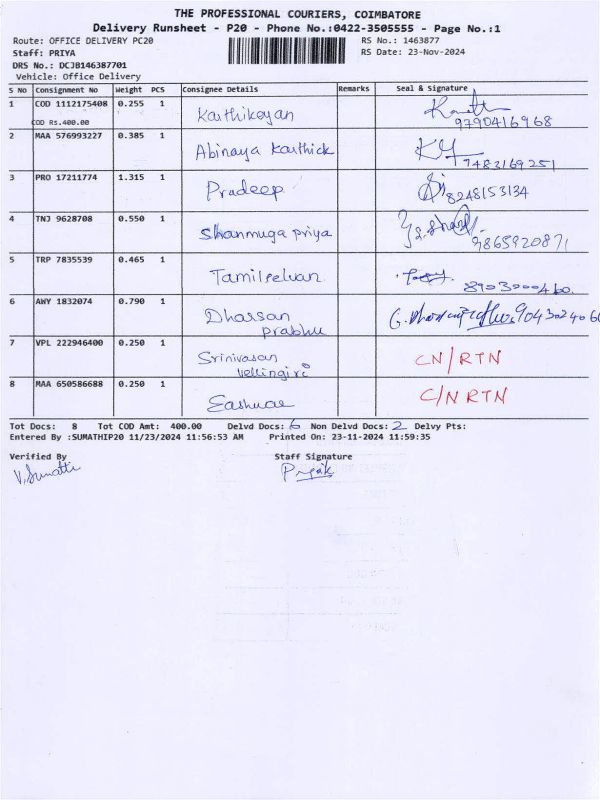 THE PROFESSIONAL COURIERS, COIMBATORE
Delivery Runsheet - P20 - Phone No.:0422-3505555 - Page No.:1
Route: OFFICE DELIVERY PC20 RS No.: 1463877
Staff: PRIYA RS Date: 23-Nov-2024
DRS No.: DCJB146387701
Vehicle: Office Delivery
S No Consignment No Weight PCS Consignee Details Remarks Seal & Signature
1 COD 1112175408 0.255 1 Karthikeyan
COD Rs.400.00 9790416968
2 MAA 576993227 0.385 1 Abinaya Karthick
7483169251
3 PRO 17211774 1.315 1 Pradeep 8248153134
4 TNJ 9628708 0.550 1 Shanmuga priya
9865920871
5 TRP 7835539 0.465 1 Tamilselvan
8903000460
6 AWY 1832074 0.790 1 Dhassan
prabhu
7 VPL 222946400 0.250 1 Srinivasan CN/RTN
Vellingiri
8 MAA 650586688 0.250 1 Eashwar C/N RTN
Tot Docs: 8 Tot COD Amt: 400.00 Delvd Docs: 6 Non Delvd Docs: 2 Delvy Pts:
Entered By :SUMATHIP20 11/23/2024 11:56:53 AM Printed On: 23-11-2024 11:59:35
Verified By Staff Signature
V.Sumathi